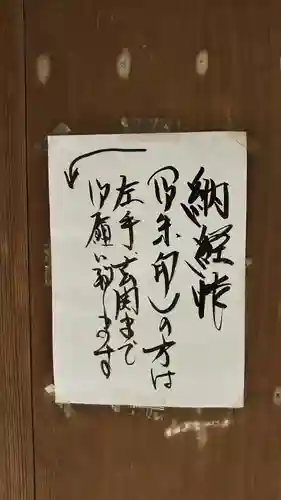 納経帖
(御朱印)の方は
左手玄関まで
御願い致します。